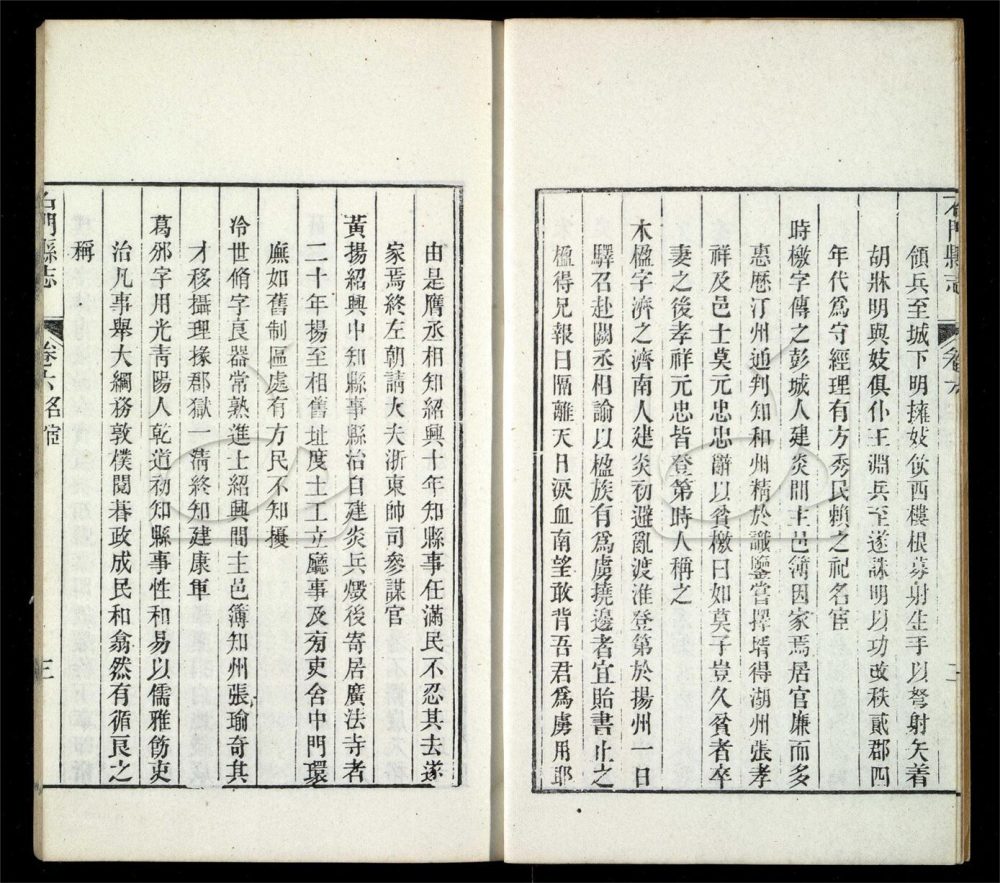 石門縣志 卷六 二
領兵至城下明擁妓飲西樓根募射生手以弩射矢着
胡牀明與妓俱仆王淵兵至遂誅明以功改秩貳郡四
年代爲守經理有方秀民賴之祀名宦
時檝字傳之彭城人建炎間主邑簿因家焉居官廉而多
惠歷汀州通判知和州精於識鑒嘗擇壻得湖州張孝
祥及邑士莫元忠忠辭以貧檝曰如莫子豈久貧者卒
妻之後孝祥元忠皆登第時人稱之
木楹字濟之濟南人建炎初避亂渡淮登第於揚州一日
驛召赴闕丞相諭以楹族有爲虜撓邊者宜貽書止之
楹得兄報曰隔離天日淚血南望敢背吾君爲虜用耶
由是膺丞相知紹興十年知縣事任滿民不忍其去遂
家焉終左朝請大夫浙東帥司參謀官
黃揚紹興中知縣事縣治自建炎兵燬後寄居廣法寺者
二十年揚至相舊址度土工立廳事及旁吏舍中門環
廡如舊制區處有方民不知擾
冷世脩字良器常熟進士紹興間主邑簿知州張瑜奇其
才移攝理掾郡獄一淸終知建康軍
葛邲字用光靑陽人乾道初知縣事性和易以儒雅飭吏
治凡事舉大綱務敦樸閱朞政成民和翕然有循良之
稱
石門縣志 卷六 名宦 三